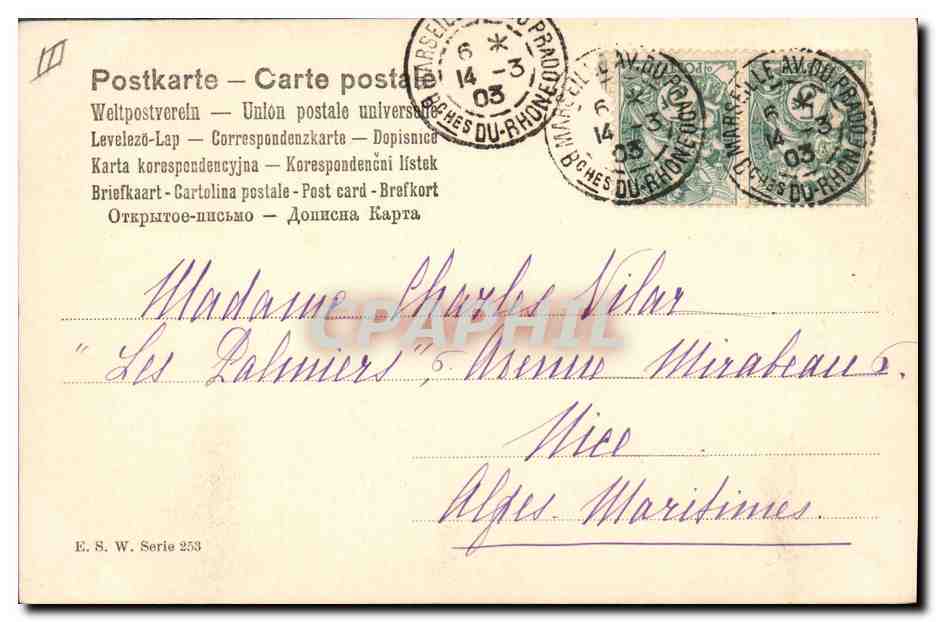 III
Postkarte – Carte postale
Weltpostverein – Union postale universelle
Levelező-Lap – Correspondenzkarte – Dopisnice
Karta korespondencyjna – Korespondenční lístek
Briefkaart - Cartolina postale - Post card - Brefkort
Открытое-письмо – Дописна Карта
MARSEILLE AV. DU PRADO
6 *
14 -3
03
BCHES DU-RHONE
MARSEILLE AV. DU PRADO
6 *
14 -3
03
BCHES DU-RHONE
MARSEILLE AV. DU PRADO
6 *
14 -3
03
BCHES DU-RHONE
5
Madame Charles Vilar
CPAPHIL
"Les Palmiers", Avenue Mirabeau
Nice
Alpes. Maritimes.
E. S. W. Serie 253